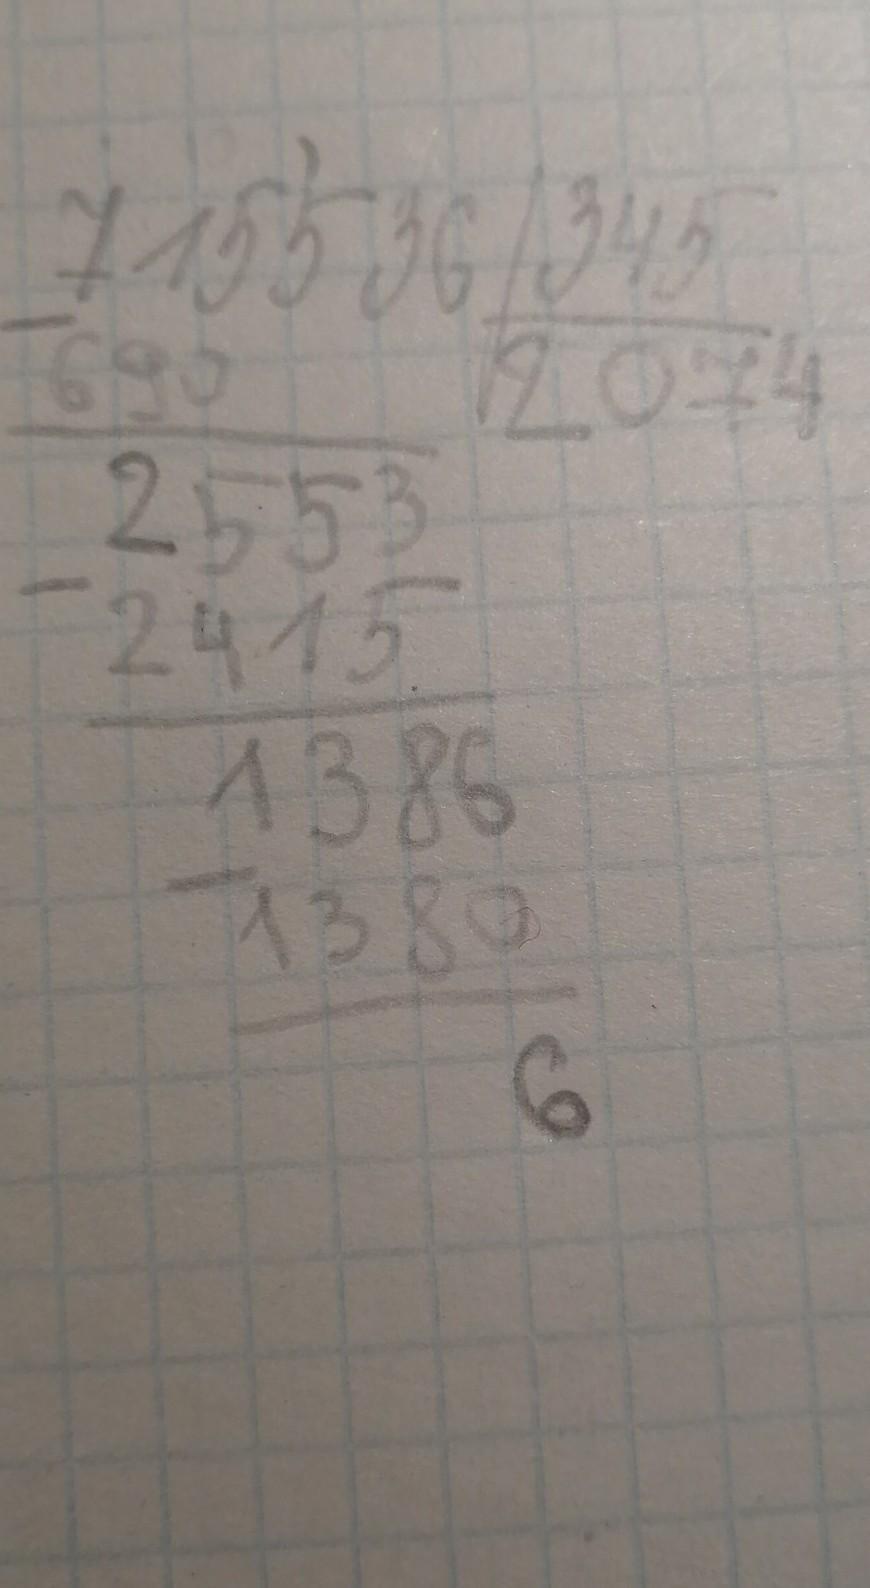 715536 345
- 690 2074
2553
- 2415
1386
- 1380
6